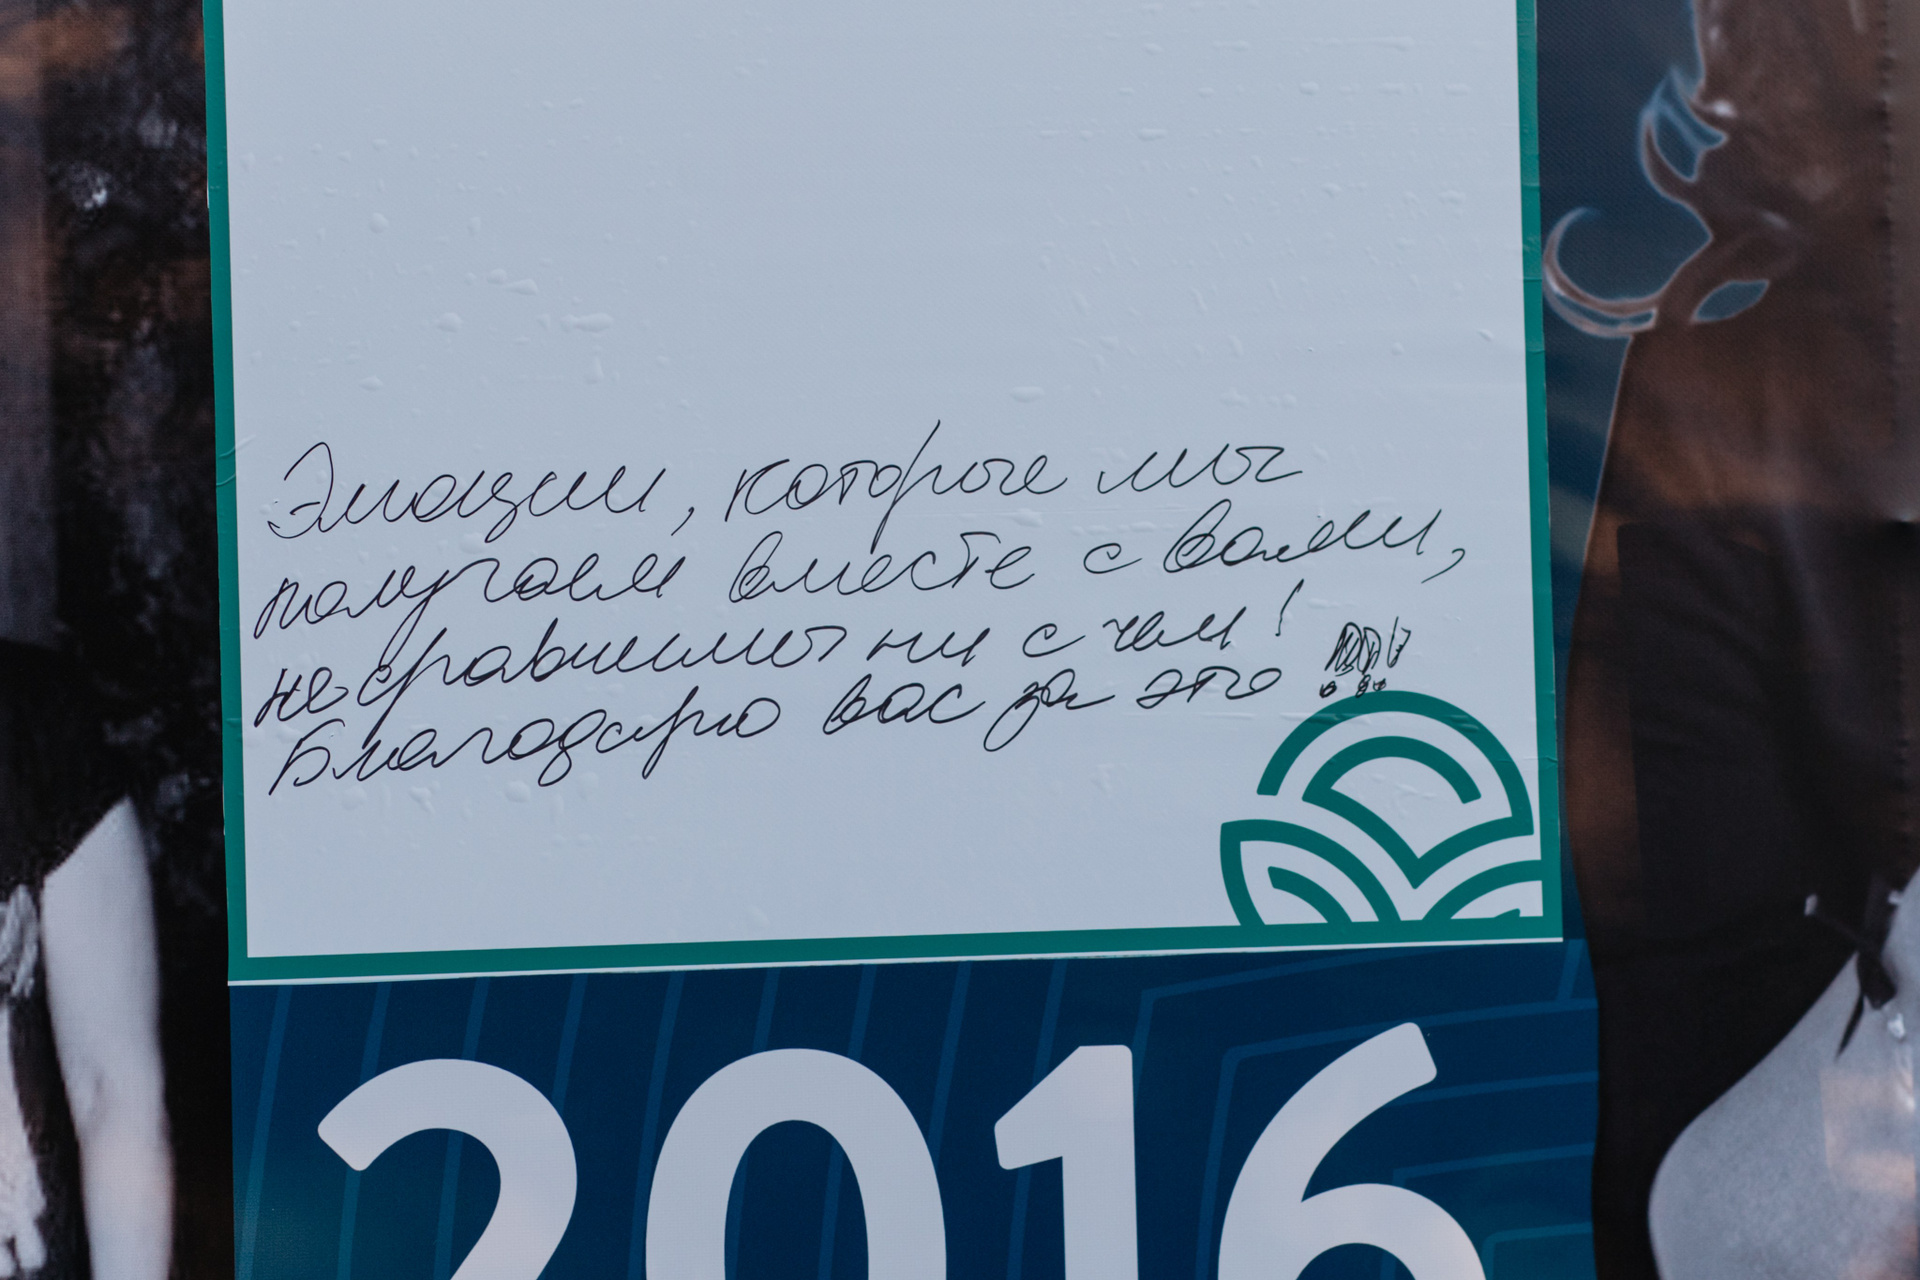 Эмоции, которые мы
получаем вместе с вами,
не сравнимы ни с чем!
Благодарю вас за это !!!
2016